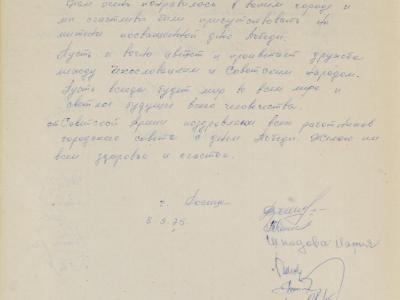 Нам очень понравилось в вашем городе и
мы счастливы были присутствовать на
митинге посвященном дню Победы.
Пусть и вечно цветет и процветает дружба
между Чехословацким и Советским народом.
Пусть всегда будет мир во всем мире и
светлое будущее всего человечества.
Советской Армии поздравляем всех работников
городского совета с днем Победы. Желаем им
всем здоровья и счастья.
г.
8.5.75.
Мария